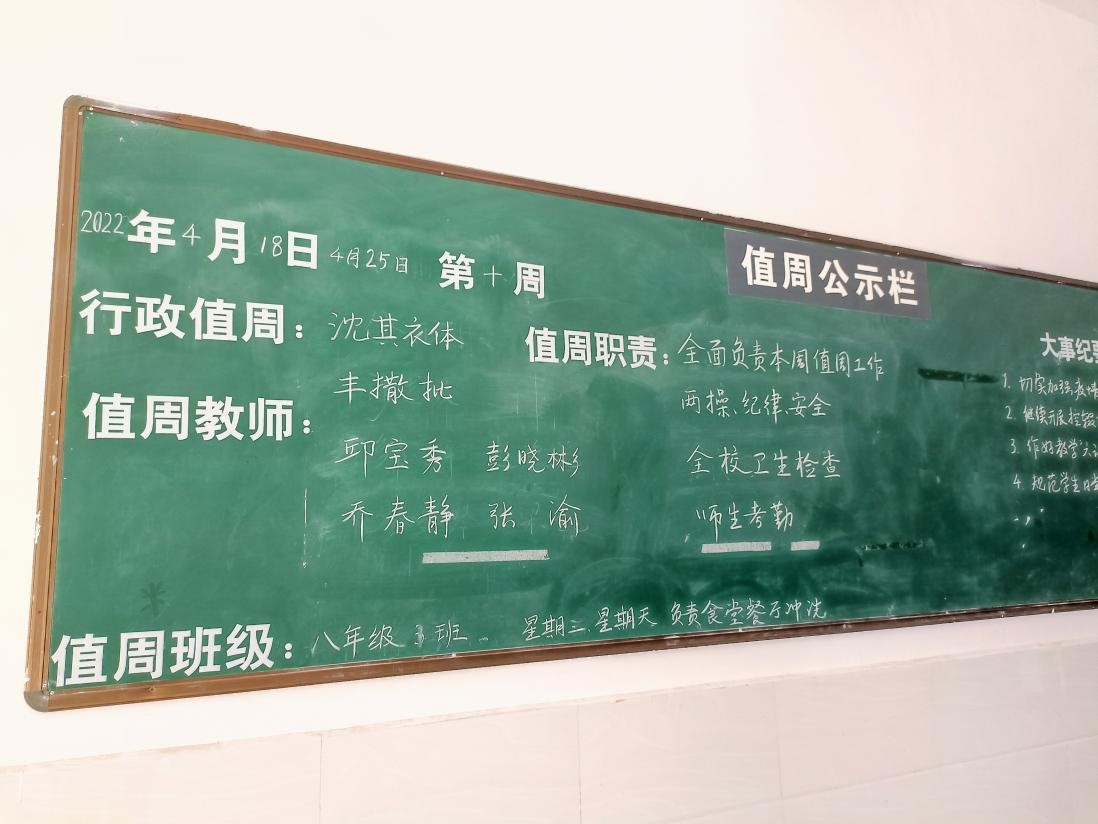 值周公示栏
2022年4月18日 4月25日 第十周
行政值周：沈其衣体
丰撒批
值周教师：
邱宝秀 彭晓彬
乔春静 张渝
值周职责：全面负责本周值周工作
两操、纪律、安全
全校卫生检查
师生考勤
大事纪要
1. 切实加强教
2. 继续开展控辍
3. 作好教学
4. 规范学生日常
值周班级：八年级3班 星期三、星期天 负责食堂餐厅冲洗